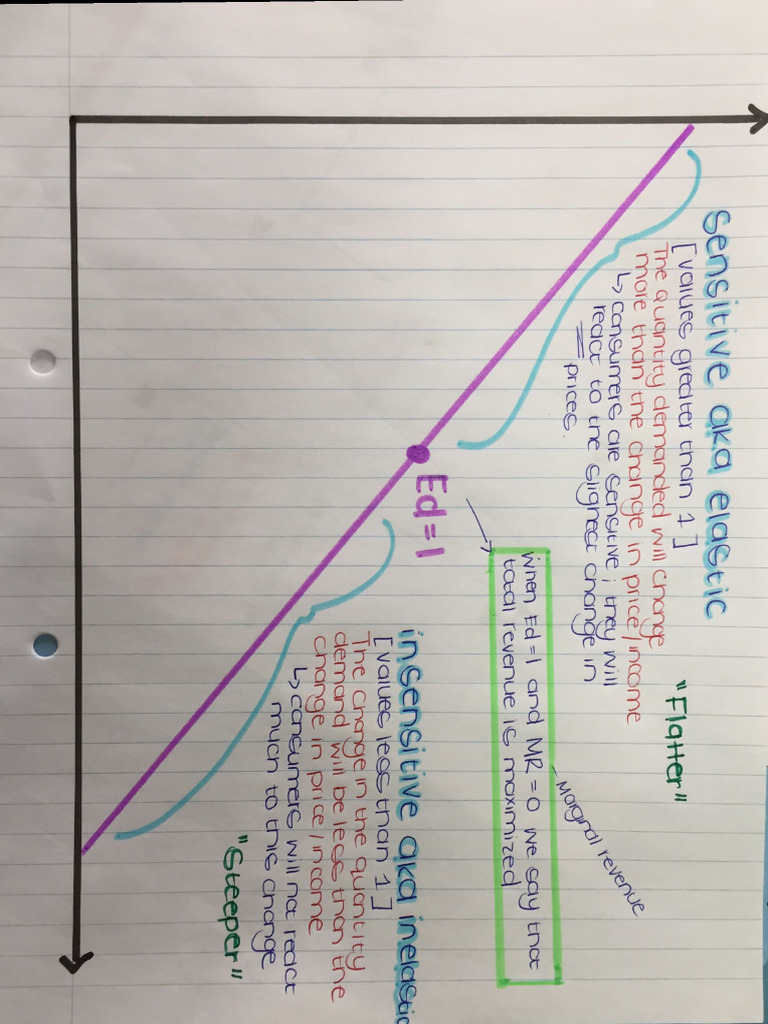 Sensitive aka elastic
[values greater than 1]
The quantity demanded will change
more than the change in price/income
↳ consumers are sensitive; they will
react to the slighest change in
prices.
"Flatter"
Ed=1
when Ed=1 and MR=0 we say that
total revenue is maximized
Marginal revenue
insensitive aka inelastic
[values less than 1]
The change in the quantity
demand will be less than the
change in price/income
↳ consumers will not react
much to this change
"Steeper"